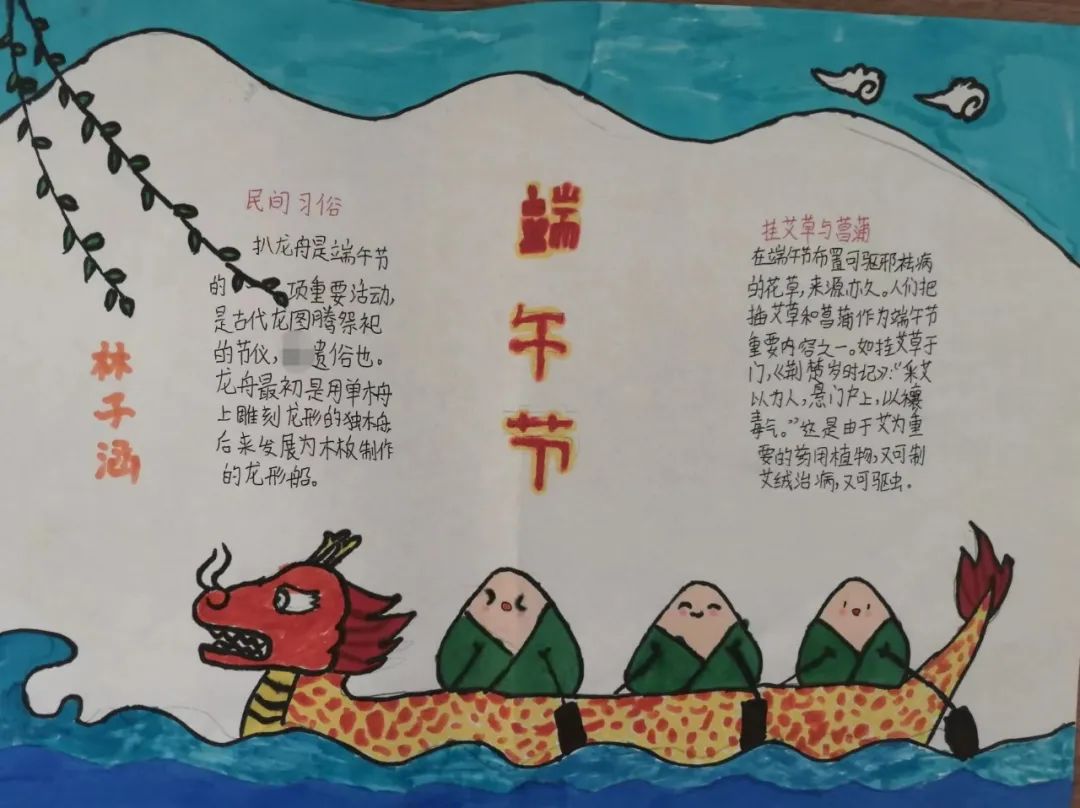 民间习俗
扒龙舟是端午节
的 项重要活动,
是古代龙图腾祭祀
的节仪, 遗俗也。
龙舟最初是用单木舟
上雕刻龙形的独木舟
后来发展为木板制作
的龙形船。
林子涵
端午节
挂艾草与菖蒲
在端午节布置可驱邪祛病
的花草,来源亦久。人们把
插艾草和菖蒲作为端午节
重要内容之一。如挂艾草于
门,《荆楚岁时记》:“采艾
以为人,悬门户上,以禳
毒气。”这是由于艾为重
要的药用植物,又可制
艾绒治病,又可驱虫。